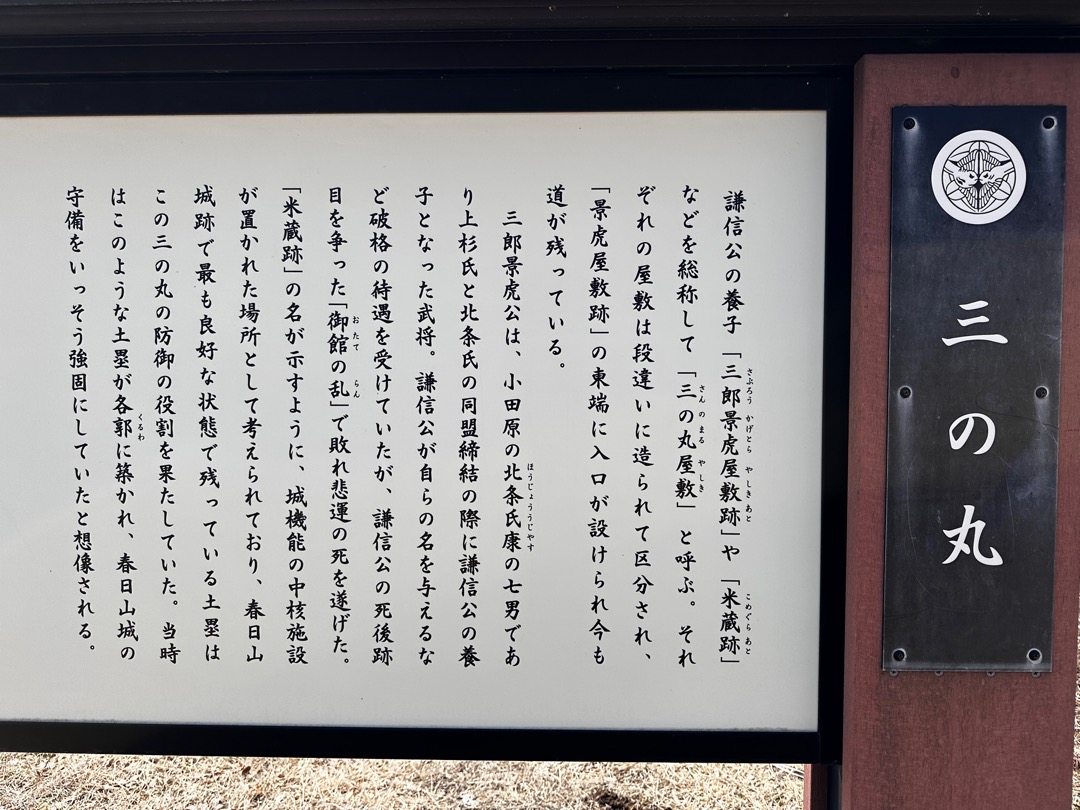 三の丸
謙信公の養子「三郎景虎屋敷跡」や「米蔵跡」
さぶろう かげとら やしきあと
こめぐらあと
などを総称して「三の丸屋敷」と呼ぶ。それ
さんのまる やしき
ぞれの屋敷は段違いに造られて区分され、
「景虎屋敷跡」の東端に入口が設けられ今も
道が残っている。
三郎景虎公は、小田原の北条氏康の七男であ
ほうじょううじやす
り上杉氏と北条氏の同盟締結の際に謙信公の養
子となった武将。謙信公が自らの名を与えるな
ど破格の待遇を受けていたが、謙信公の死後跡
目を争った「御館の乱」で敗れ悲運の死を遂げた。
おたて らん
「米蔵跡」の名が示すように、城機能の中核施設
が置かれた場所として考えられており、春日山
城跡で最も良好な状態で残っている土塁は
この三の丸の防御の役割を果たしていた。当時
はこのような土塁が各郭に築かれ、春日山城の
くるわ
守備をいっそう強固にしていたと想像される。